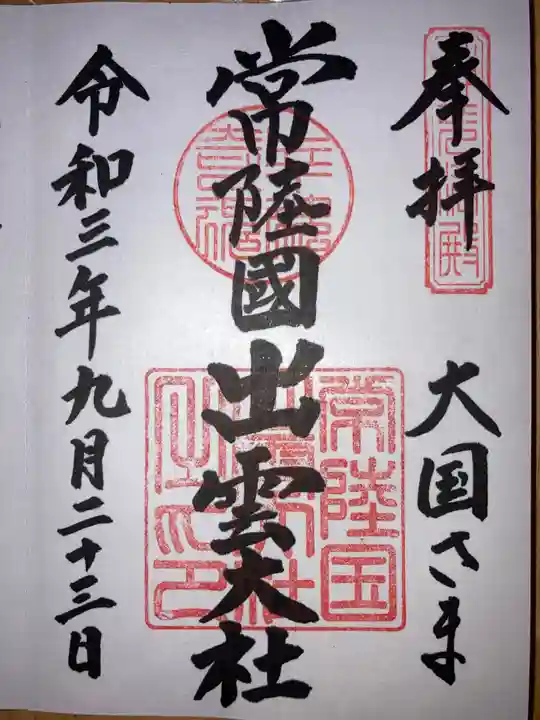 奉拝
大国さま
常陸國出雲大社
常陸国
令和三年九月二十三日